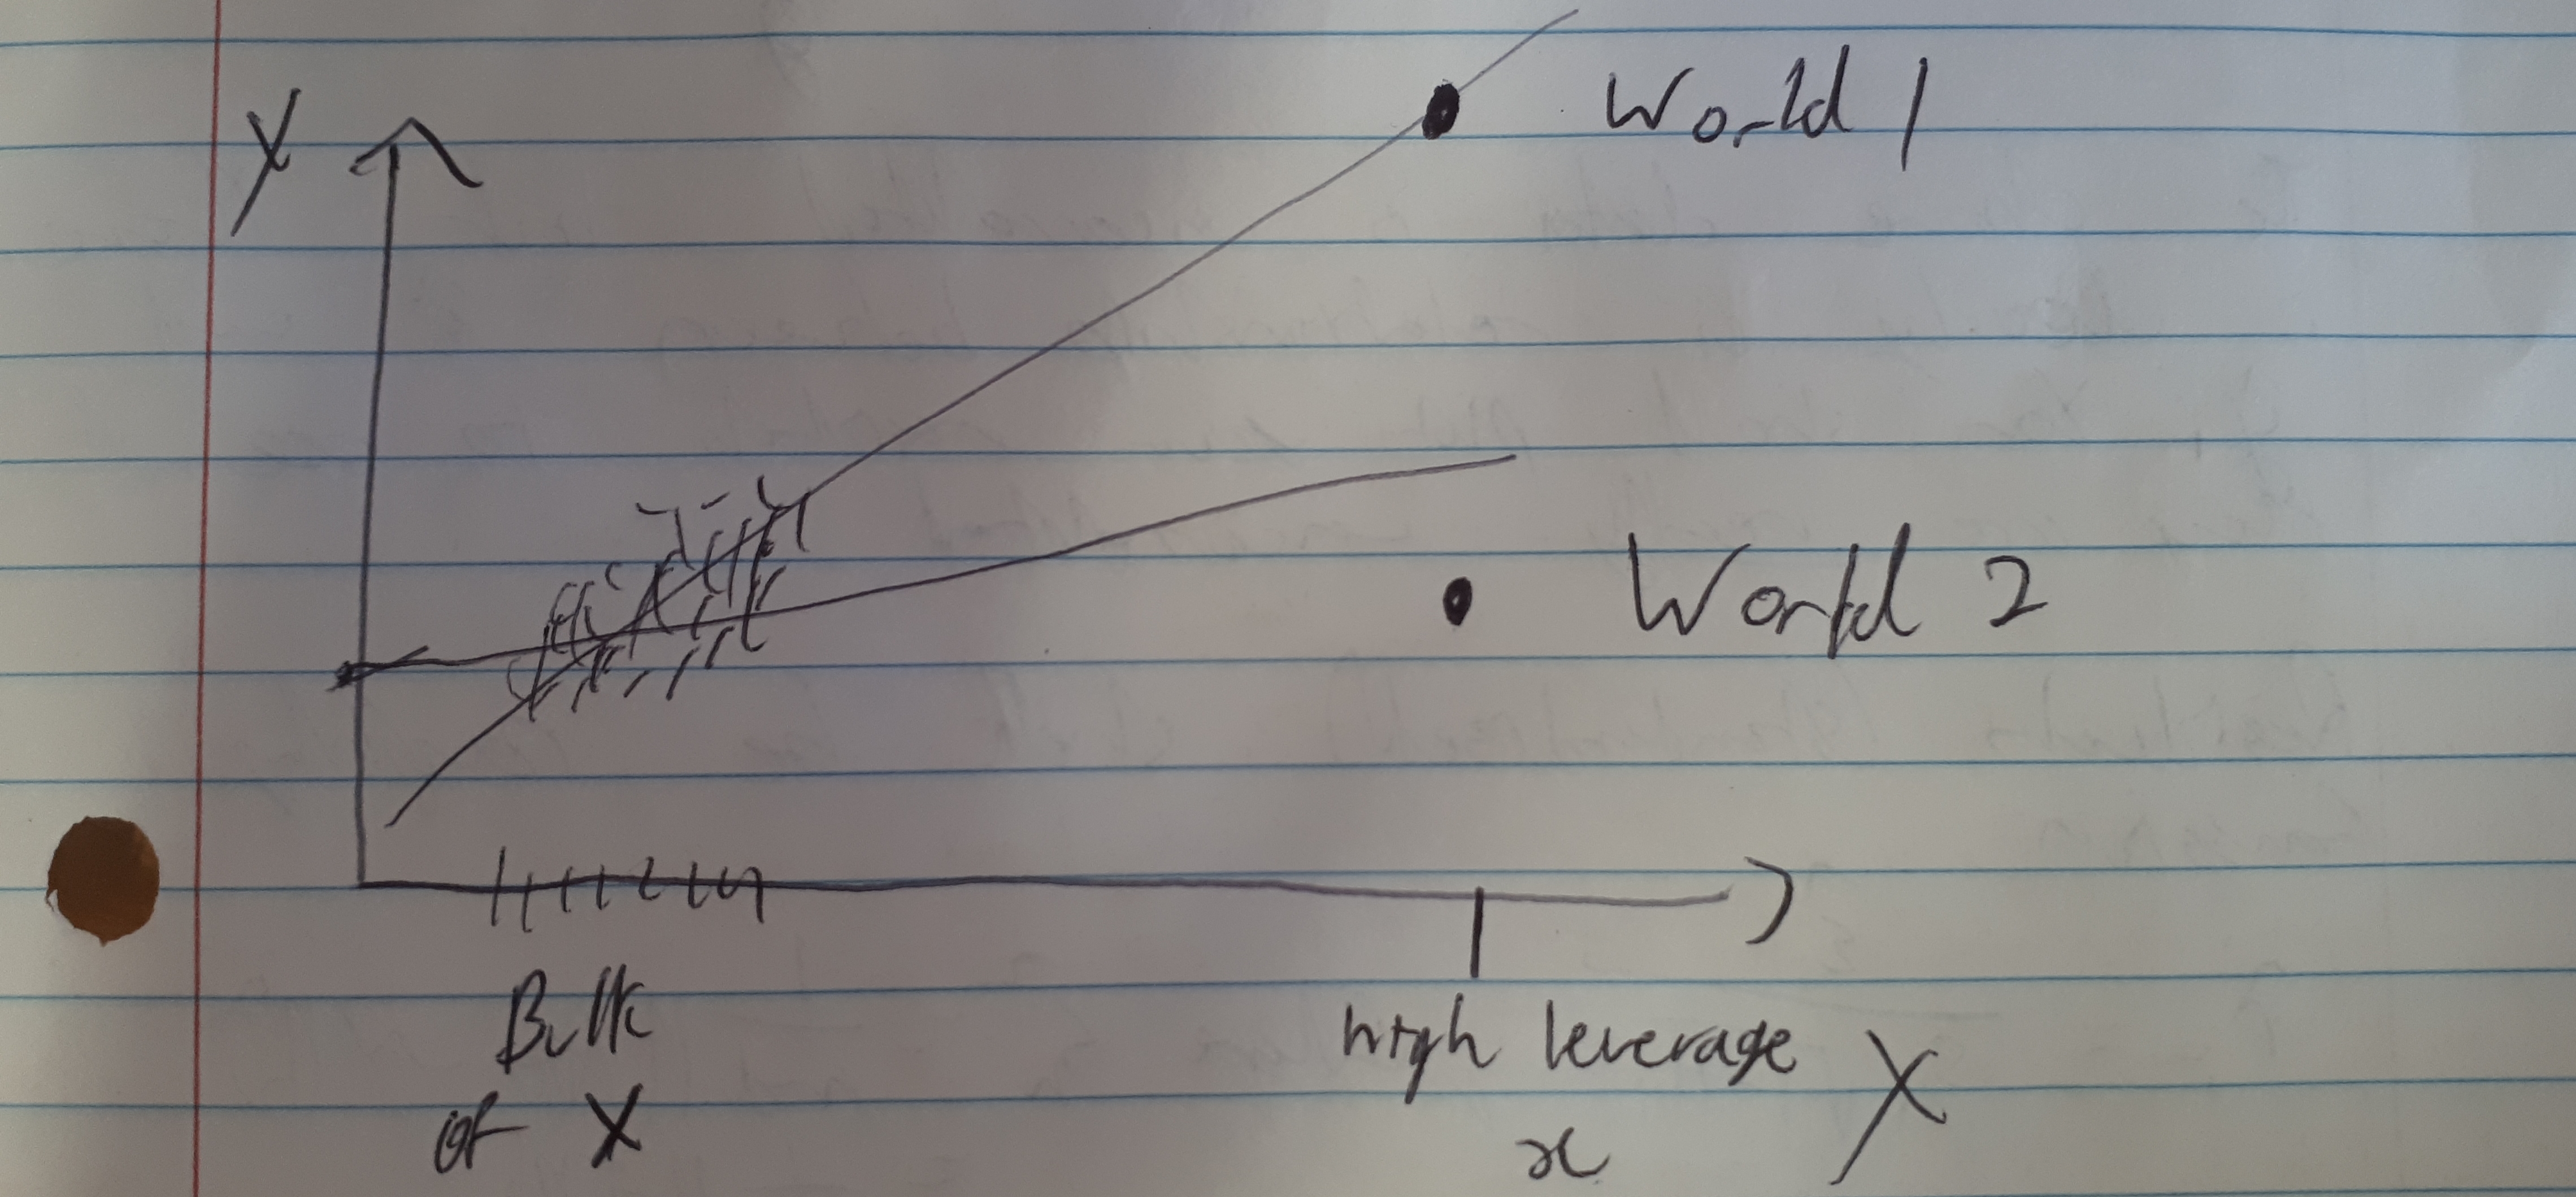 World 1
Y
World 2
Bulk
of X
high leverage
x
X